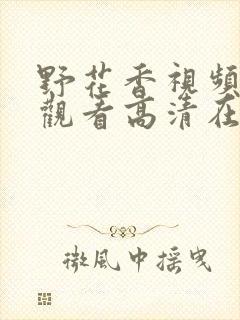 野花香視頻
觀看高清在
微風中摇曳